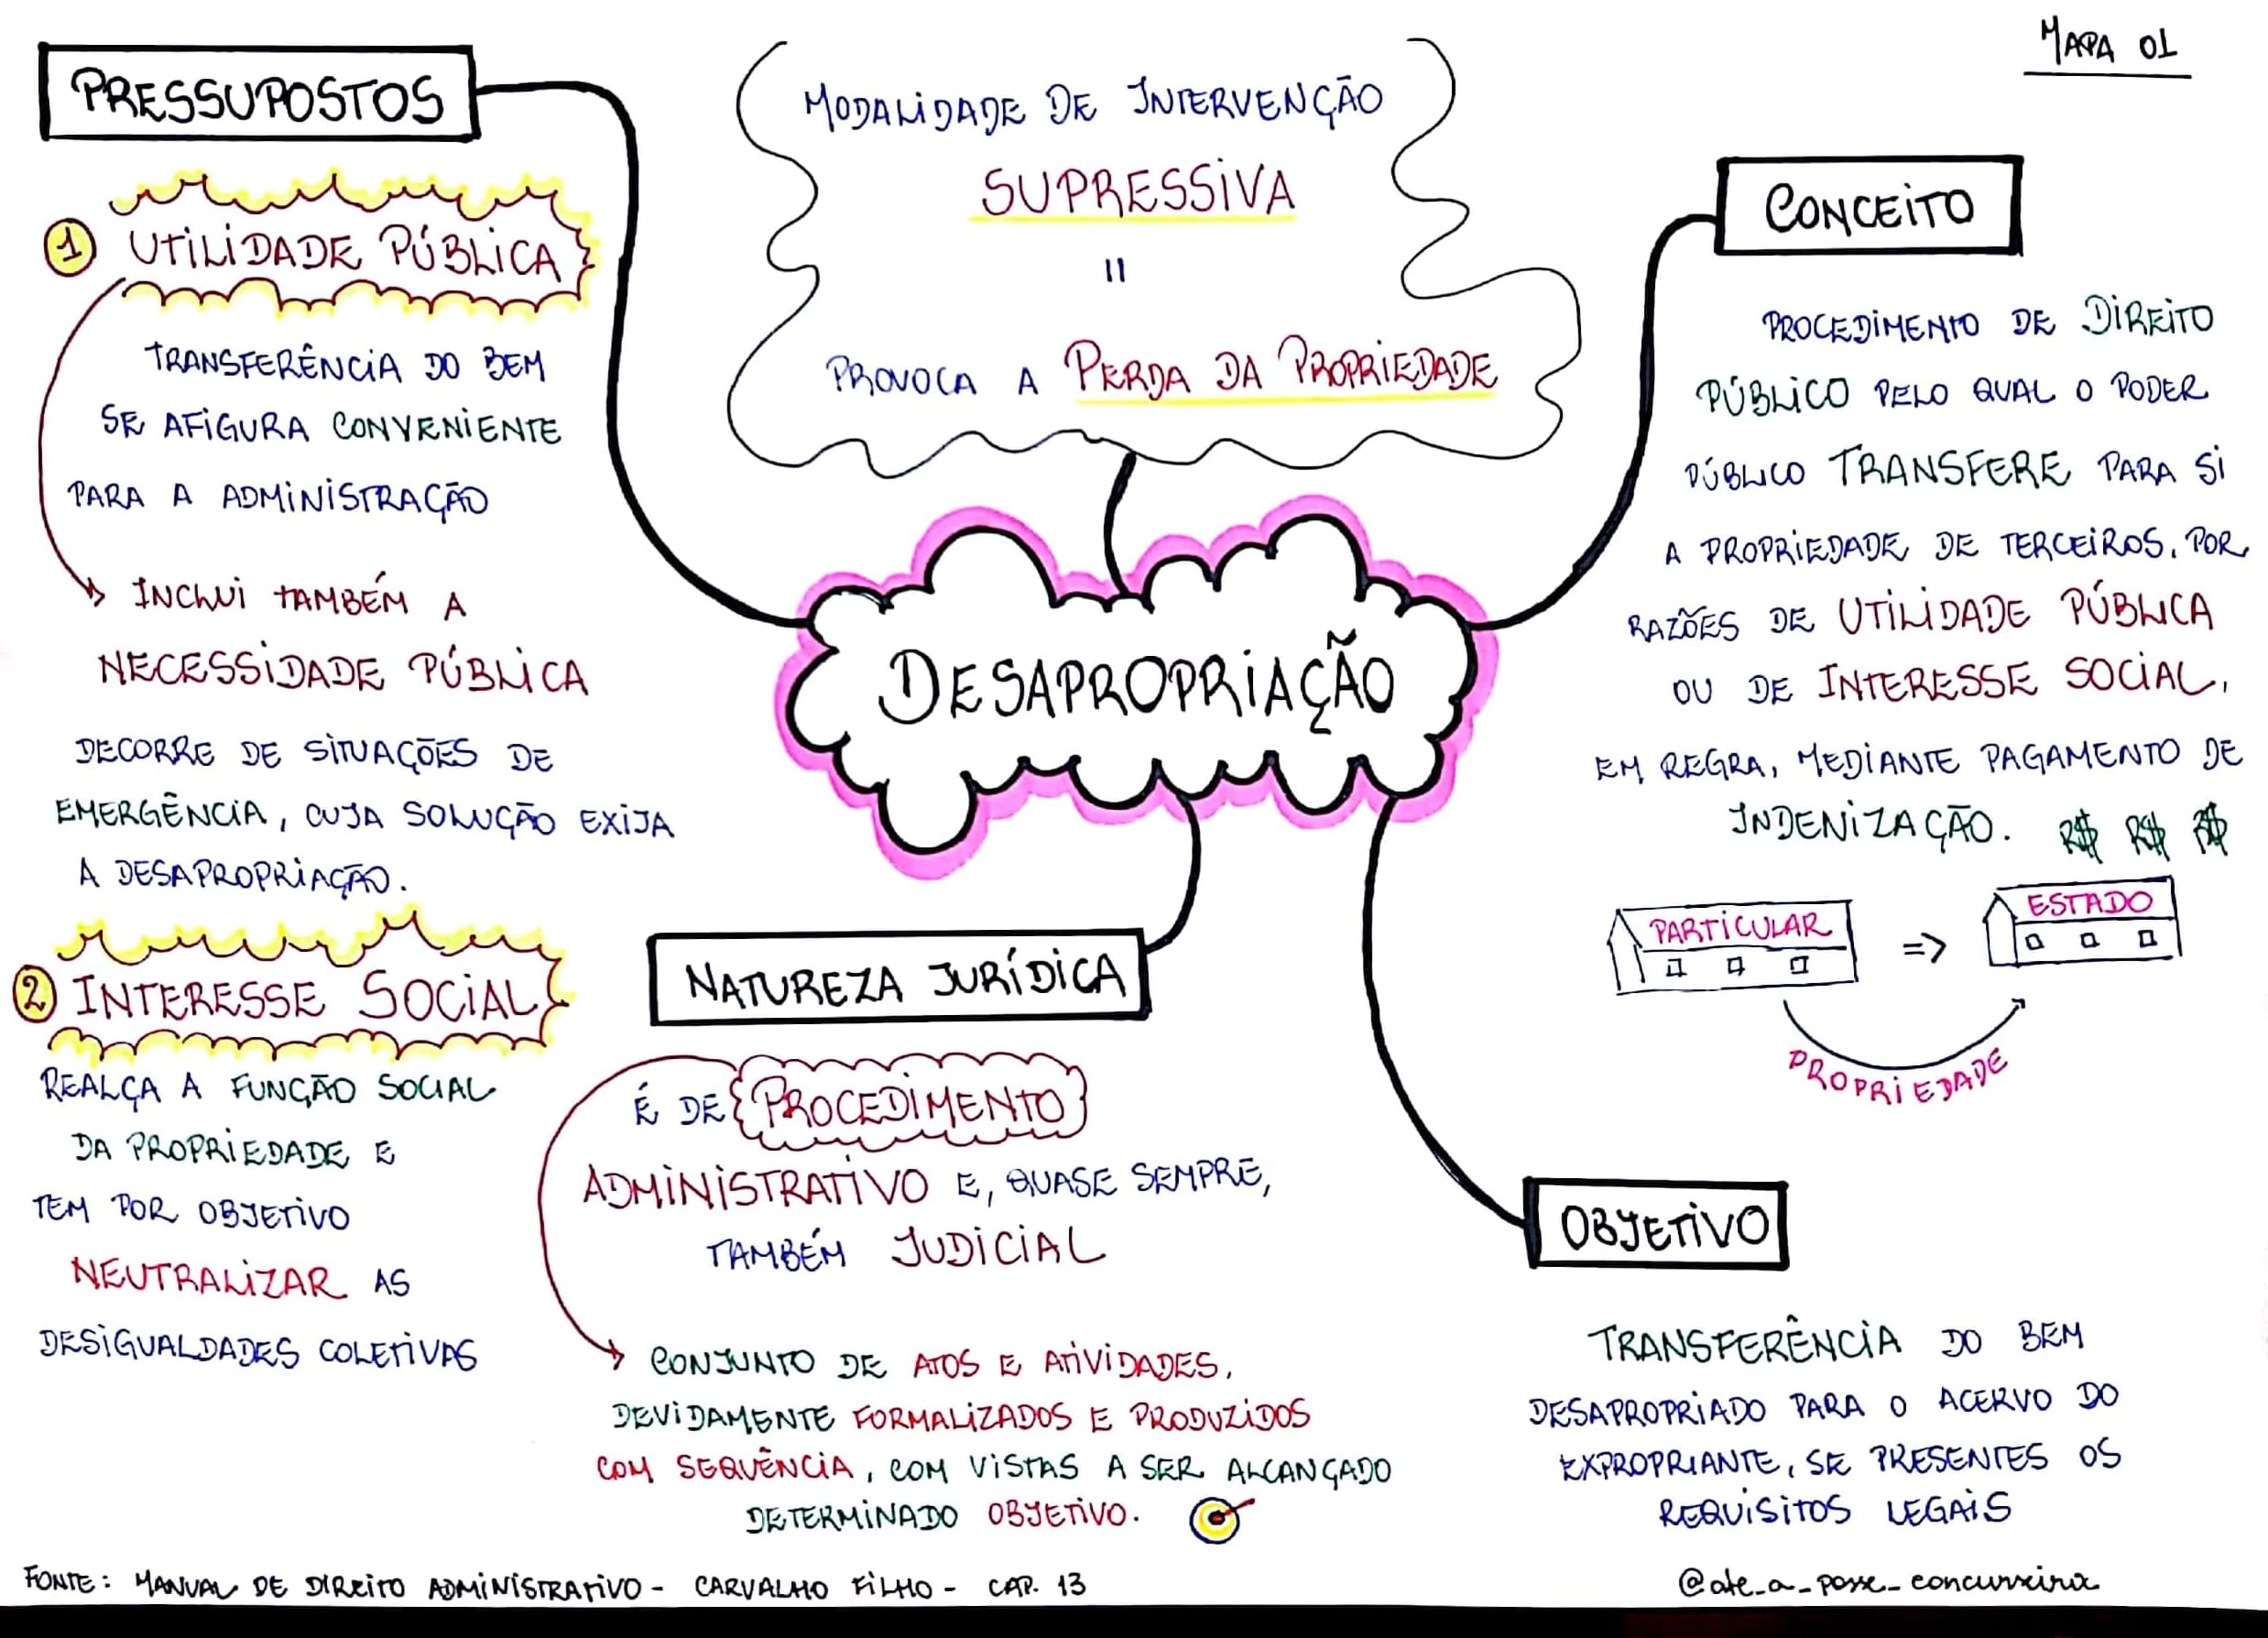 MAPA 01
PRESSUPOSTOS
1 UTILIDADE PÚBLICA
TRANSFERÊNCIA DO BEM
SE AFIGURA CONVENIENTE
PARA A ADMINISTRAÇÃO
INCLUI TAMBÉM A
NECESSIDADE PÚBLICA
DECORRE DE SITUAÇÕES DE
EMERGÊNCIA, CUJA SOLUÇÃO EXIJA
A DESAPROPRIAÇÃO.
2 INTERESSE SOCIAL
REALÇA A FUNÇÃO SOCIAL
DA PROPRIEDADE E
TEM POR OBJETIVO
NEUTRALIZAR AS
DESIGUALDADES COLETIVAS
MODALIDADE DE INTERVENÇÃO
SUPRESSIVA
=
PROVOCA A PERDA DA PROPRIEDADE
DESAPROPRIAÇÃO
NATUREZA JURÍDICA
É DE PROCEDIMENTO
ADMINISTRATIVO E, QUASE SEMPRE,
TAMBÉM JUDICIAL
CONJUNTO DE ATOS E ATIVIDADES,
DEVIDAMENTE FORMALIZADOS E PRODUZIDOS
COM SEQUÊNCIA, COM VISTAS A SER ALCANÇADO
DETERMINADO OBJETIVO.
CONCEITO
PROCEDIMENTO DE DIREITO
PÚBLICO PELO QUAL O PODER
PÚBLICO TRANSFERE PARA SI
A PROPRIEDADE DE TERCEIROS, POR
RAZÕES DE UTILIDADE PÚBLICA
OU DE INTERESSE SOCIAL,
EM REGRA, MEDIANTE PAGAMENTO DE
INDENIZAÇÃO. R$ R$ R$
PARTICULAR => ESTADO
PROPRIEDADE
OBJETIVO
TRANSFERÊNCIA DO BEM
DESAPROPRIADO PARA O ACERVO DO
EXPROPRIANTE, SE PRESENTES OS
REQUISITOS LEGAIS
FONTE: MANUAL DE DIREITO ADMINISTRATIVO - CARVALHO FILHO - CAP. 13
@ate_a_posse_concurseira